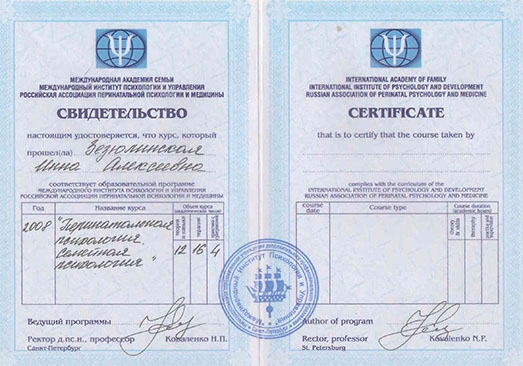 МЕЖДУНАРОДНАЯ АКАДЕМИЯ СЕМЬИ
МЕЖДУНАРОДНЫЙ ИНСТИТУТ ПСИХОЛОГИИ И УПРАВЛЕНИЯ
РОССИЙСКАЯ АССОЦИАЦИЯ ПЕРИНАТАЛЬНОЙ ПСИХОЛОГИИ И МЕДИЦИНЫ
СВИДЕТЕЛЬСТВО
настоящим удостоверяется, что курс, который
прошел(ла) Везюлинская
Инна Алексеевна
соответствует образовательной программе
МЕЖДУНАРОДНОГО ИНСТИТУТА ПСИХОЛОГИИ И УПРАВЛЕНИЯ
РОССИЙСКОЙ АССОЦИАЦИИ ПЕРИНАТАЛЬНОЙ ПСИХОЛОГИИ И МЕДИЦИНЫ
Год Название курса Объем курса
2008 "Перинатальная
психология.
Семейная
психология" 12 16 4
Ведущий программы
Ректор д.пс.н., профессор Коваленко Н.П.
Санкт-Петербург
INTERNATIONAL ACADEMY OF FAMILY
INTERNATIONAL INSTITUTE OF PSYCHOLOGY AND DEVELOPMENT
RUSSIAN ASSOCIATION OF PERINATAL PSYCHOLOGY AND MEDICINE
CERTIFICATE
that is to certify that the course taken by
complies with the curriculum of the
INTERNATIONAL INSTITUTE OF PSYCHOLOGY AND DEVELOPMENT
RUSSIAN ASSOCIATION OF PERINATAL PSYCHOLOGY AND MEDICINE
course date Course type Course duration
Author of program
Rector, professor Kovalenko N.P.
St. Petersburg